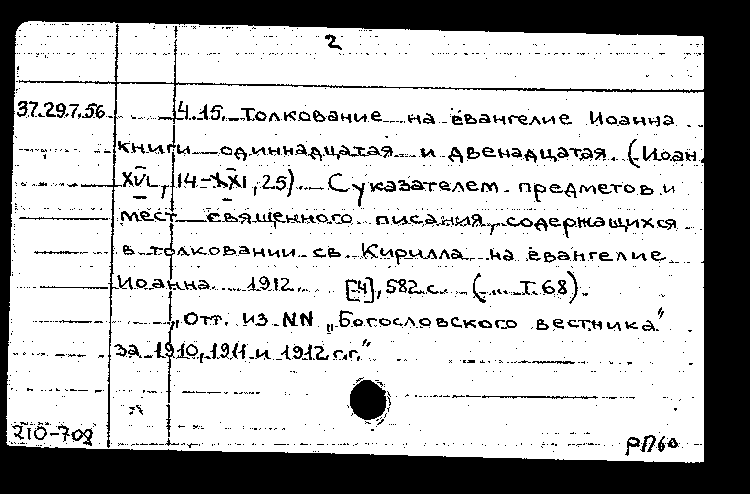 2
37.29.7.56 Ч.15. Толкование на евангелие Иоанна
книги одиннадцатая и двенадцатая. (Иоан.
XVI, 14-XXI, 25). С указателем предметов и
мест священного писания, содержащихся
в толковании св. Кирилла на евангелие
Иоанна 1912. [4], 582 с. (... Т. 68).
„Отт. из NN „Богословского вестника"
за 1910, 1911 и 1912 г.г."
210-708